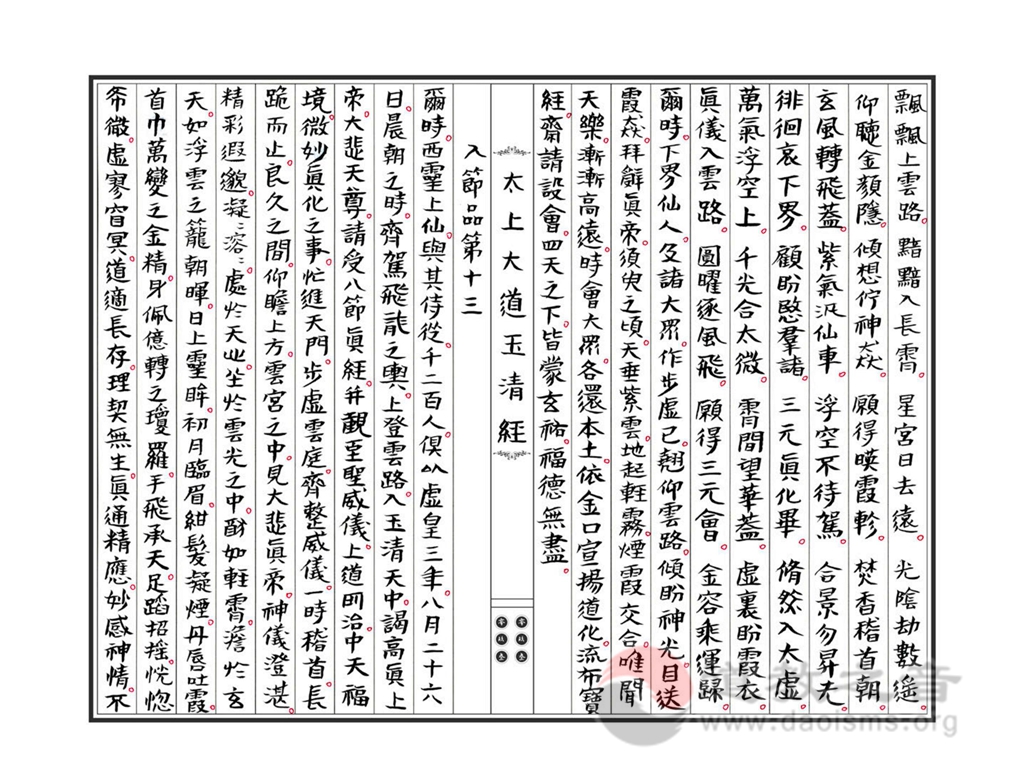 飄飄上雲路。黯黯入長霄。星宮日去遠。光陰劫數遙。
仰聽金顏隱。傾想佇神炎。願得暎霞軫。焚香稽首朝。
玄風轉飛蓋。紫氣汎仙車。浮空不待駕。合景勿昇无。
徘徊哀下界。顧盼愍羣諸。三元真化畢。脩然入太虛。
萬氣浮空上。千光合太微。霄間望華蓋。虛裏盼霞衣。
真儀入雲路。圓曜逐風飛。願得三元會。金容乘運歸。
爾時。下界仙人及諸大眾。作步虛已。翹仰雲路。傾盼神光。目送
霞焱。拜辭真帝。須臾之頃。天垂紫雲。地起輕霧。煙霞交合。唯聞
天樂。漸漸高遠。時會大眾。各還本土。依金口宣揚道化。流布寶
經。齋請設會。四天之下。皆蒙玄祐。福德無盡。
太上大道玉清經
入節品第十三
爾時。西靈上仙。與其侍從。千二百人俱。以虛皇三年。八月二十六
日。晨朝之時。齊駕飛龍之輿。上登雲路。入玉清天中。謁高真上
帝。大悲天尊。請受八節真經。并觀至聖威儀。上道所治。中天福
境。微妙真化之事。忙進天門。步虛雲庭。齊整威儀。一時稽首。長
跪而止。良久之間。仰瞻上方。雲宮之中。見大悲真帝。神儀澄湛。
精彩遐邈。凝凝溶溶。處於天也。坐於雲光之中。酎如輕霄。澹於玄
天。如浮雲之籠朝暉。日上靈眸。初月臨眉。紺髮凝煙。丹唇吐霞。
首巾萬變之金精。身佩億轉之瓊羅。手飛承天。足蹈招搖。恍惚
希微。虛寥窅冥。道適長存。理契無生。真通精應。妙感神情。不
道教之音
www.daoisms.org